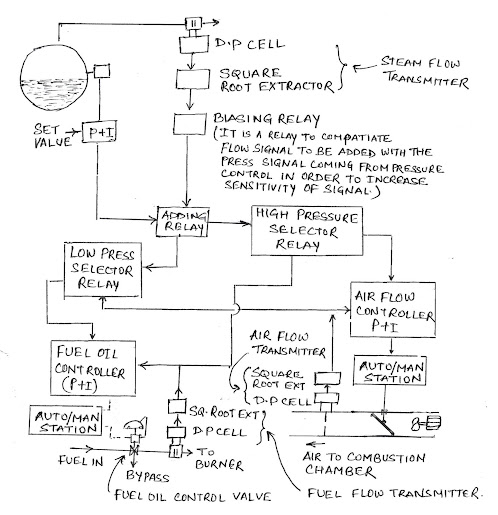 D.P CELL
SQUARE
ROOT EXTRACTOR
STEAM FLOW
TRANSMITTER
SET
VALUE
P+I
BIASING RELAY
(IT IS A RELAY TO COMPATIATE
FLOW SIGNAL TO BE ADDED WITH THE
PRESS SIGNAL COMING FROM PRESSURE
CONTROL IN ORDER TO INCREASE
SENSITIVITY OF SIGNAL.)
ADDING
RELAY
HIGH PRESSURE
SELECTOR
RELAY
LOW PRESS
SELECTOR
RELAY
AIR FLOW
CONTROLLER
P+I
AIR FLOW
TRANSMITTER
FUEL OIL
CONTROLLER
(P+I)
SQUARE
ROOT EXT
D.P CELL
AUTO/MAN
STATION
AUTO/MAN
STATION
SQ.ROOT EXT
D.P CELL
FUEL IN
TO
BURNER
BYPASS
AIR TO COMBUSTION
CHAMBER
FUEL OIL CONTROL VALVE
FUEL FLOW TRANSMITTER.